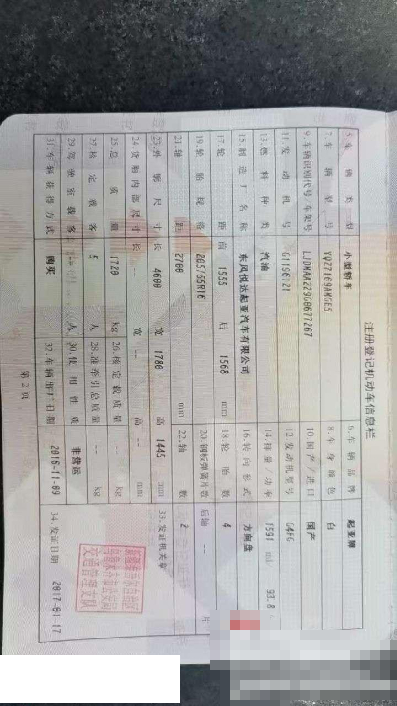 注册登记机动车信息栏
5.车辆类型 小型轿车 6.车辆品牌 起亚牌
7.车辆型号 YQZ7169AMGE5 8.车身颜色 白
9.车辆识别代号/车架号 LJDMAA229G0677267 10.国产/进口 国产
11.发动机号 12.发动机型号 G4FG
13.燃料种类 汽油 14.排量/功率 1591 ml/ 93.8
15.制造厂名称 东风悦达起亚汽车有限公司 16.转向形式 方向盘
17.轮距 前 1555 后 1568 mm 18.轮胎数 4
19.轮胎规格 205/55R16 20.钢板弹簧片数 后轴 -- 片
21.轴距 2700 mm 22.轴数 2
23.外廓尺寸 长 4600 宽 1780 高 1445 mm 33.发证机关章
24.货厢内部尺寸 长 -- 宽 -- 高 -- mm
25.总质量 1720 kg 26.核定载质量 -- kg
27.核定载客 5 人 28.准牵引总质量 -- kg
29.驾驶室载客 -- 人 30.使用性质 非营运
31.车辆获得方式 购买 32.车辆出厂日期 2016-11-09 34.发证日期 2017-01-17
交通警察支队
第 2 页